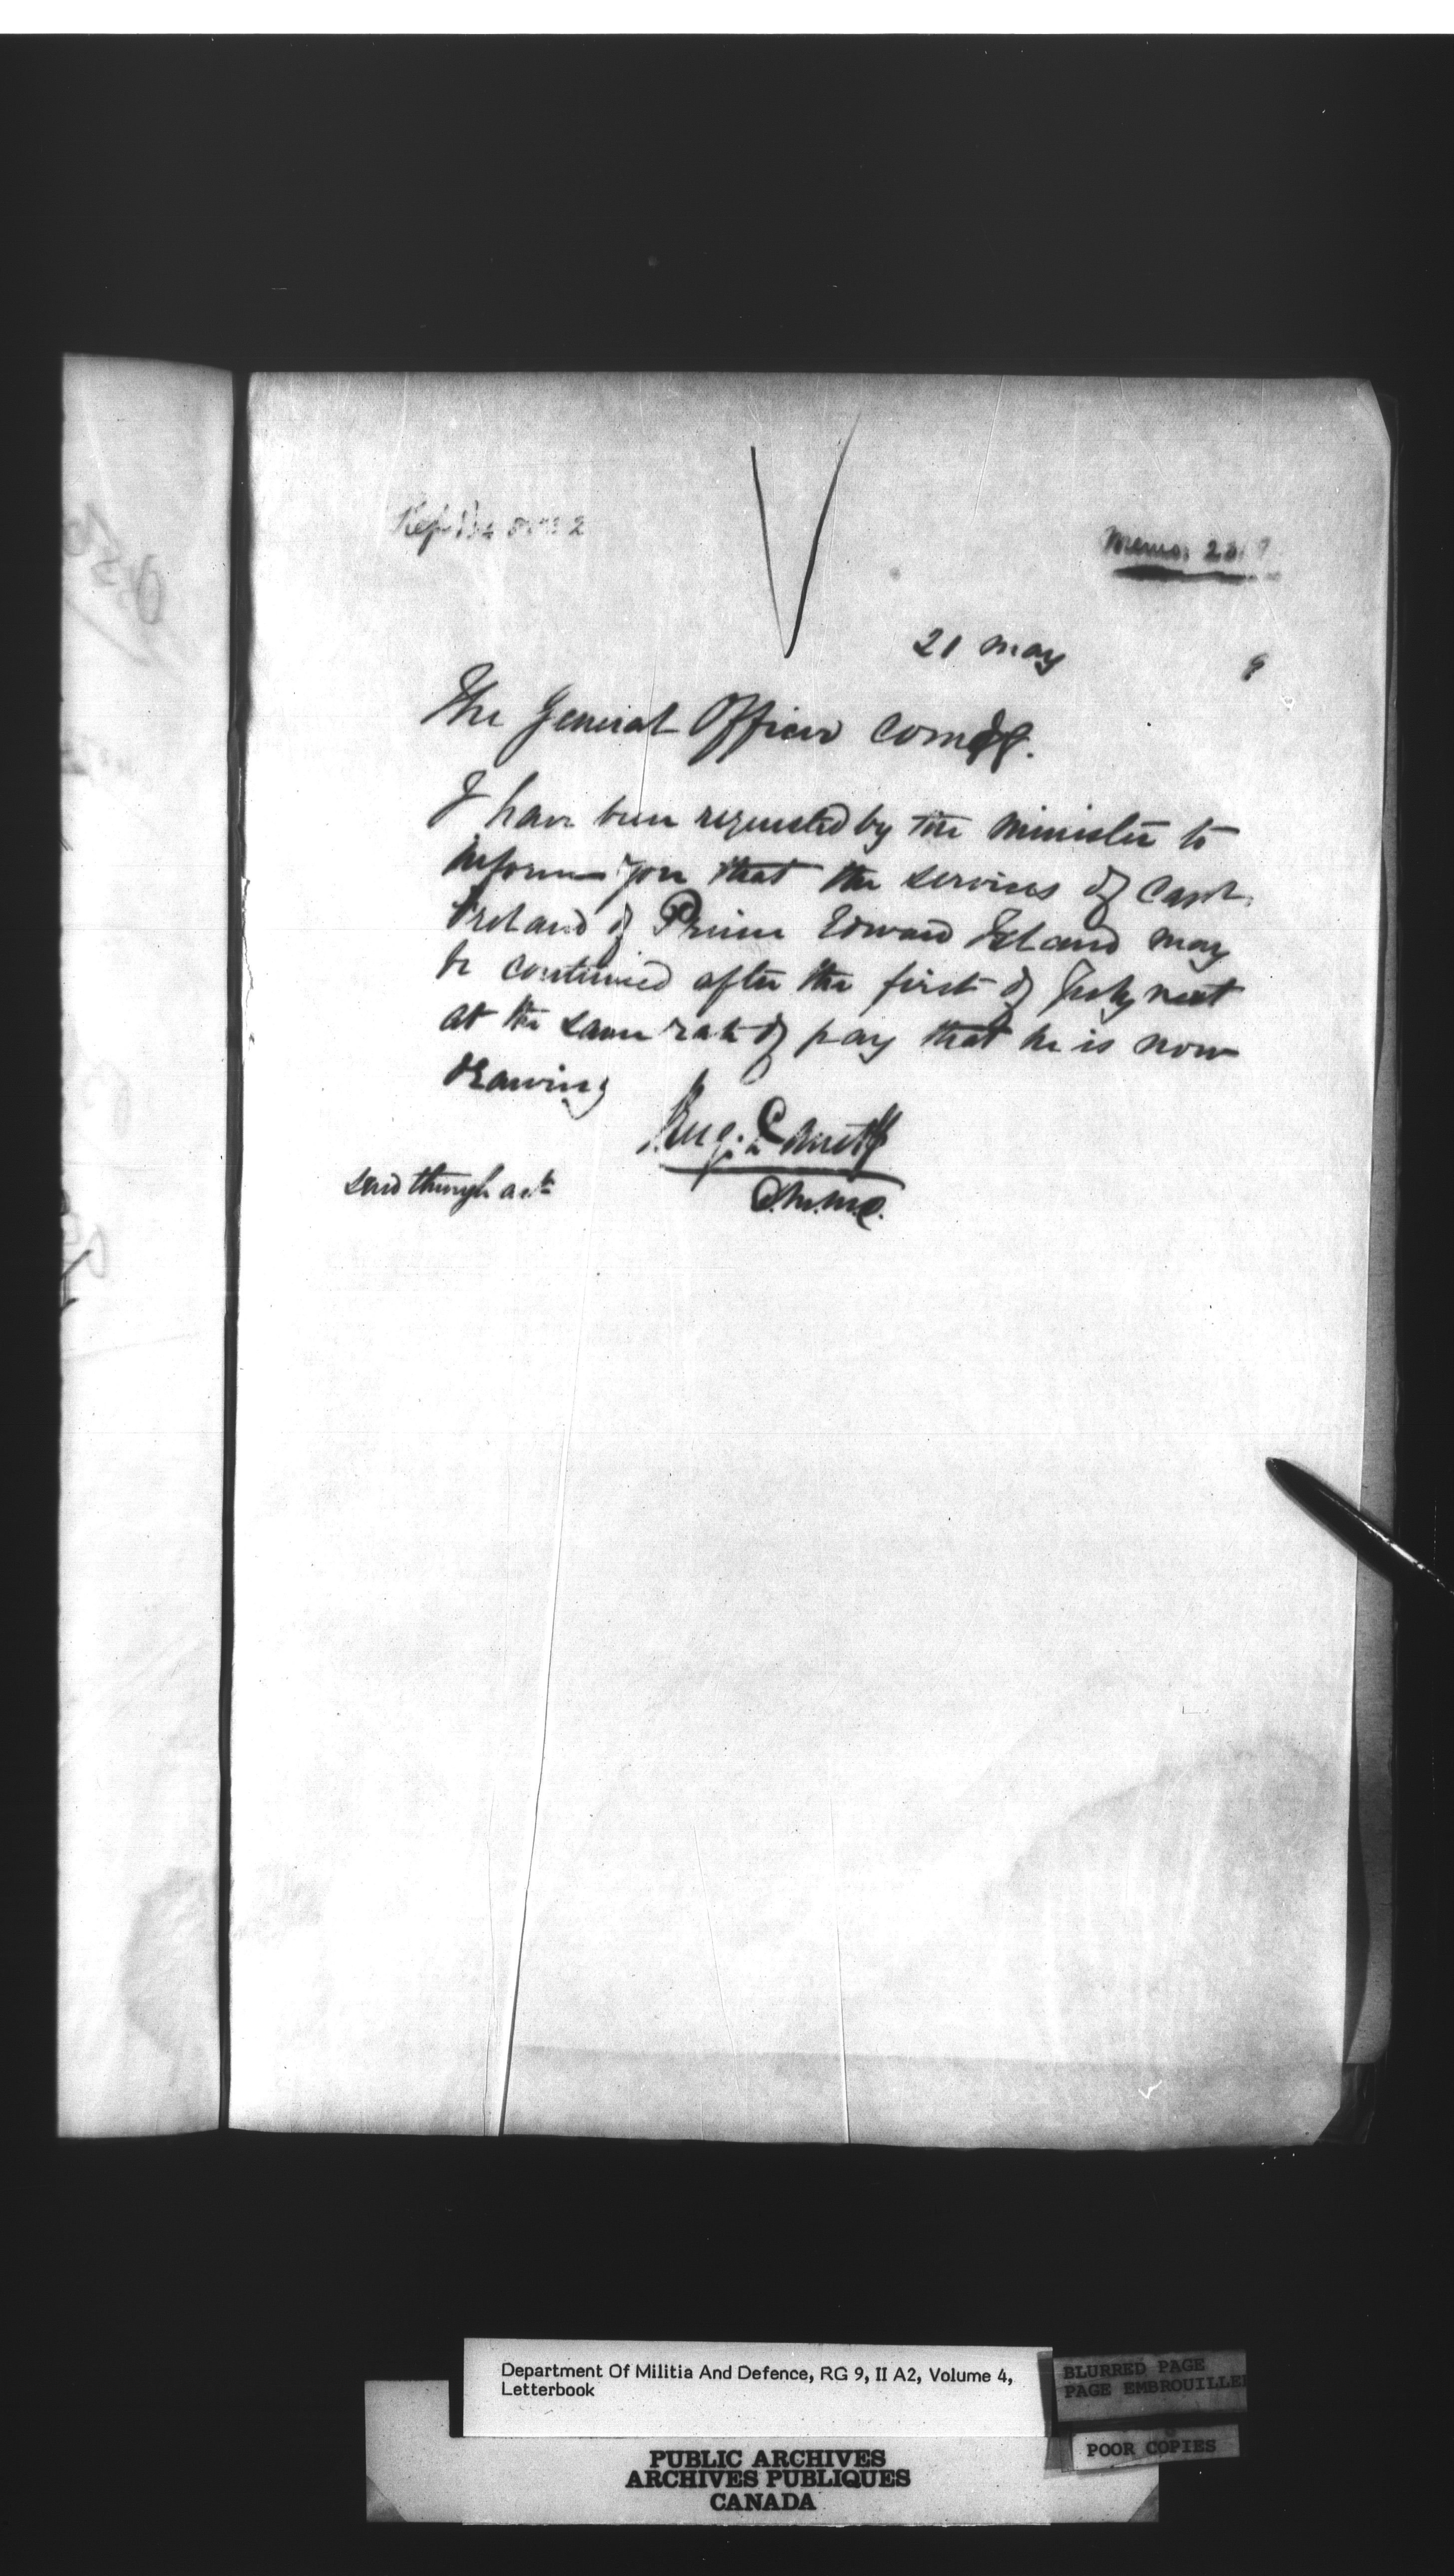 Memo. 23
21 May 9
The General Officer Comdg.
I have been requested by the Minister to
inform you that the services of Capt.
Ireland of Prince Edward Island may
be continued after the first of July next
at the same rate of pay that he is now
drawing
D.M.M.D.
send through
Department Of Militia And Defence, RG 9, II A2, Volume 4,
Letterbook
BLURRED PAGE
PAGE EMBROUILLE
POOR COPIES
PUBLIC ARCHIVES
ARCHIVES PUBLIQUES
CANADA